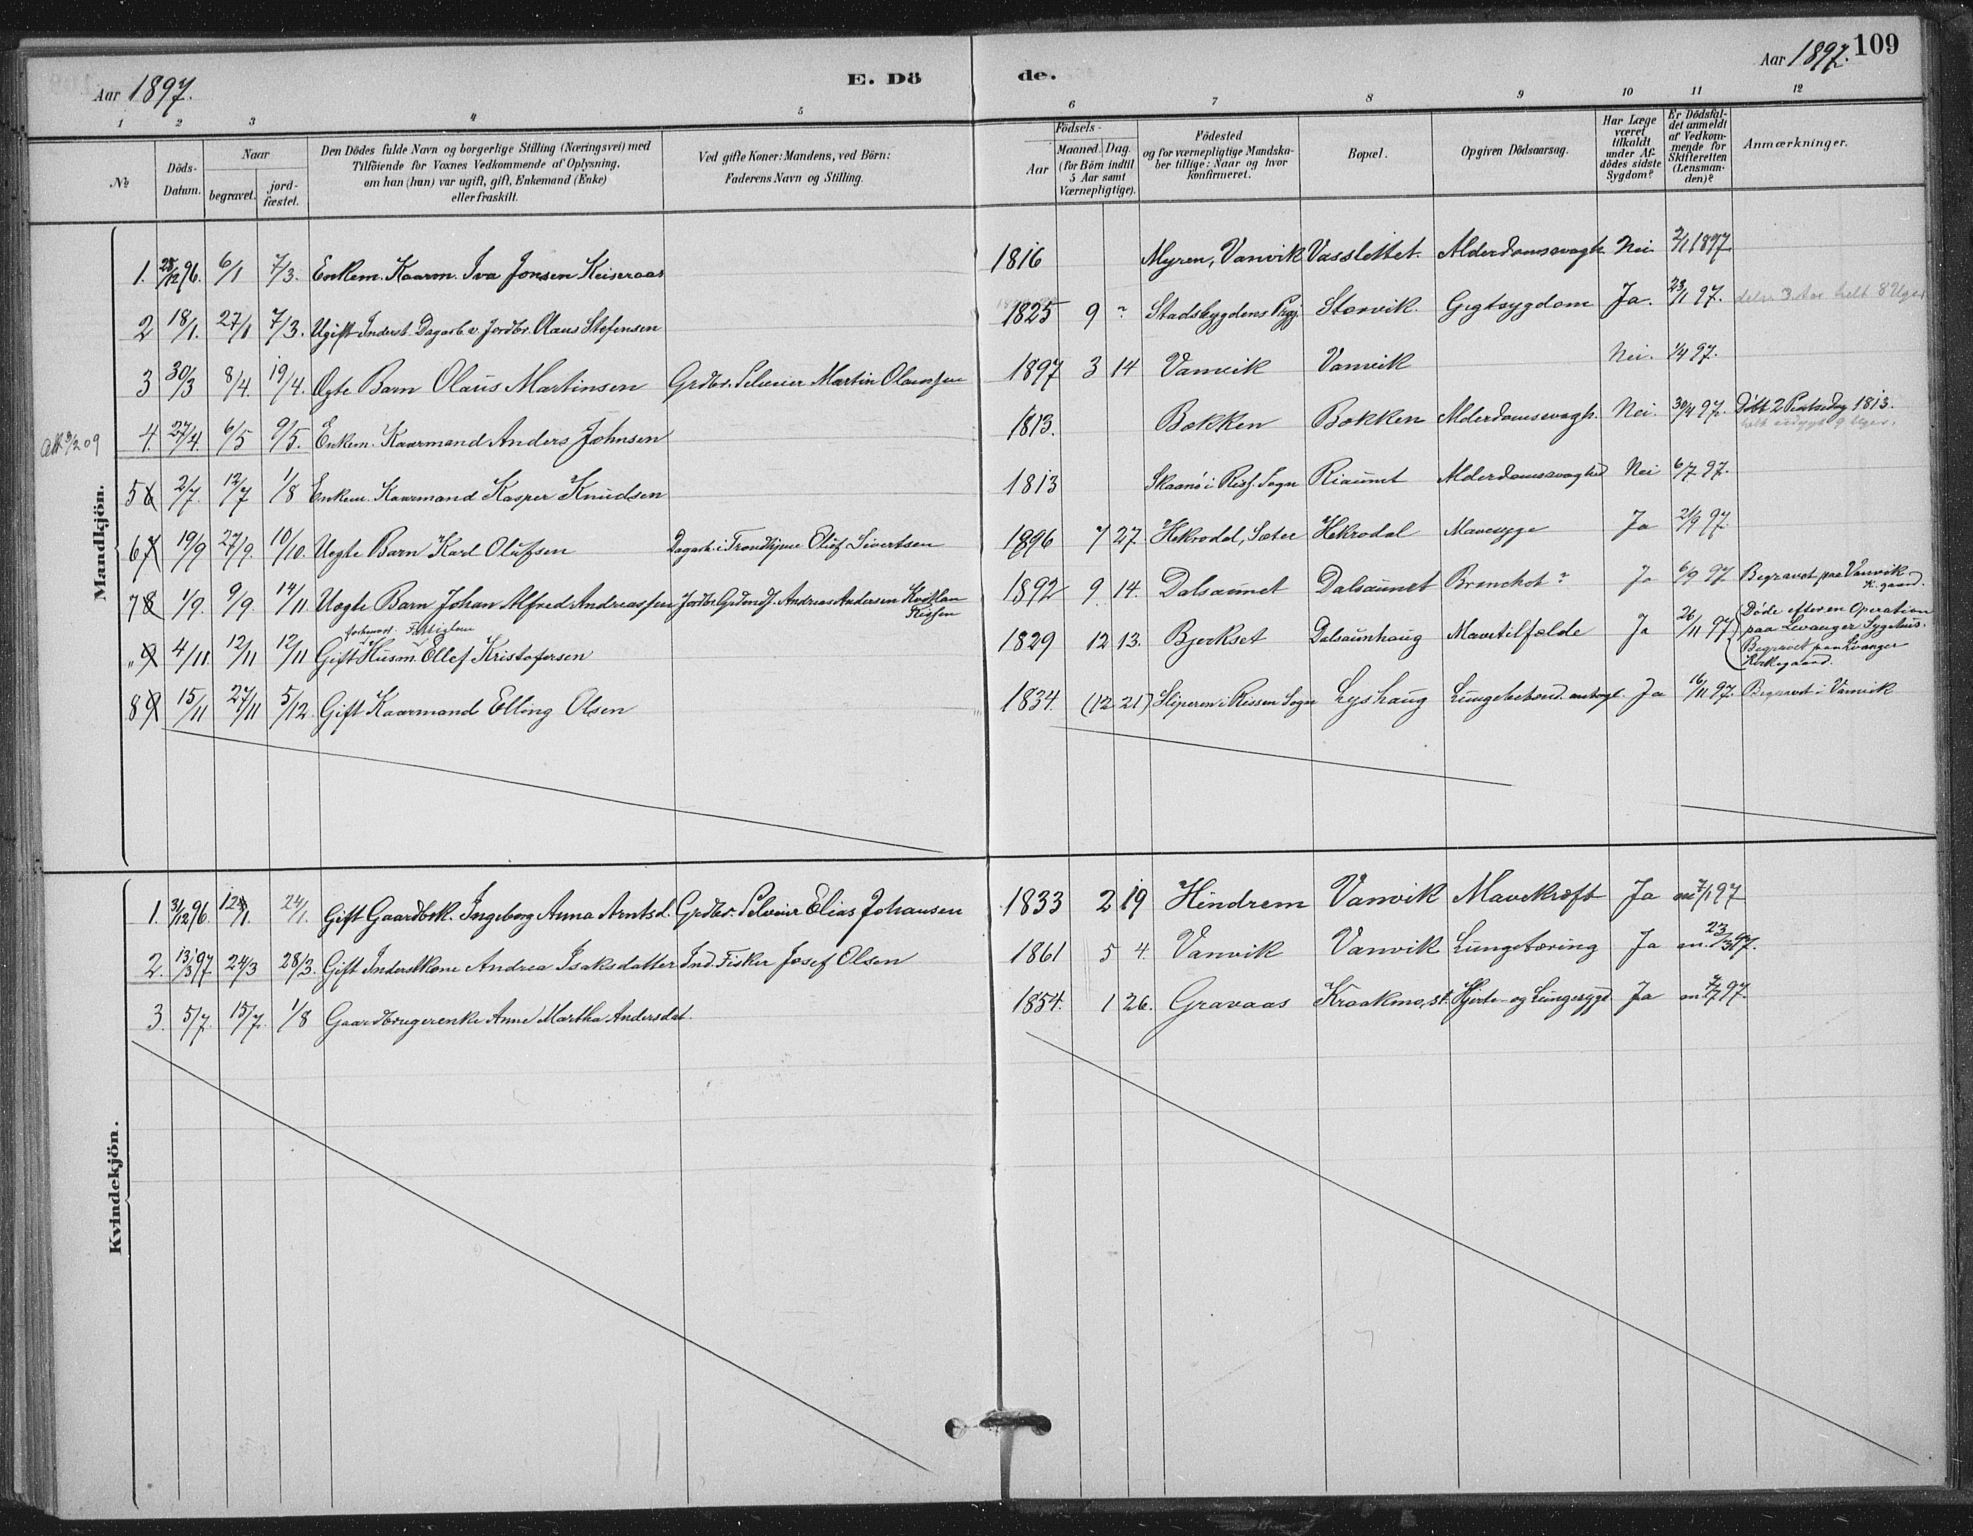 Aar 1897. E. Dö de. Aar 1897. 109
1 2 3 4 5 6 7 8 9 10 11 12
№
Döds-Datum.
Naar
begravet.
jord-fæstet.
Den Dödes fulde Navn og borgerlige Stilling (Næringsvei) med
Tilföiende for Voxnes Vedkommende af Oplysning,
om han (hun) var ugift, gift, Enkemand (Enke)
eller fraskilt.
Ved gifte Koner: Mandens, ved Börn:
Faderens Navn og Stilling.
Födsels-
Aar
Maaned. Dag.
(for Börn indtil
5 Aar samt
Værnepligtige).
Födested
og for værnepligtige Mandska-
ber tillige: Naar og hvor
konfirmeret.
Bopæl.
Opgiven Dödsaarsag.
Har Læge
været
tilkaldt
under Af-
dödes sidste
Sygdom?
Er Dödsfal-
det anmeldt
af Vedkom-
mende for
Skifteretten
(Lensman-
den)?
Anmærkninger.
Mandkjön.
1. 28/12 96. 6/1 7/3. Enkem. Kaarm. Iva Jonsen Keiseraas 1816 Myren, Vanvik Vasslettet. Alderdomssvagh. Nei 2/1 1897
2 18/1. 27/1 7/3. Ugift Inderst. Dagarb. v. Jordbr. Olaus Stefensen 1825 9 ? Stadsbygdens Prgj. Storvik. Gigtsygdom Ja. 23/1 97. 3 Aar helt 8 Uger
3 30/3 8/4. 19/4. Ægte Barn Olaus Martinsen Grdbr. Selveier Martin Olaussen 1897 3 14 Vanvik Vanvik Nei. 1/4 97.
4. 27/4. 6/5 9/5. Enkem. Kaarmand Anders Johnsen 1813. Bakken Bakken Alderdomssvagh. Nei. 30/4 97. Döbt 2 Pintsedag 1813.
5 2/7. 12/7 1/8 Enkem. Kaarmand Kasper Knudsen 1813 Skaanö i Risf. Sogn Riaunet Alderdomssvaghed Nei 6/7 97.
6 19/9 27/9. 10/10. Uegte Barn Karl Olufsen Dagarb. i Trondhjem Oluf Sivertsen 1896 7 27. Hekrodal, Sæter Hekrodal Mavesyge Ja 21/9 97.
7 1/9. 9/9. 14/11. Uegte Barn Johan Alfred Andreassen Jordbr. Grdmdf. Andreas Andersen Kvithan
Rissen 1892 9. 14. Dalsaunet Dalsaunet Bronchit ? Ja 6/9 97 Begravet paa Vanvik
K.gaard.
„ 4/11. 12/11 12/11 Gift Husm. Ellef Kristofersen 1829 12 13. Bjerkset Dalsaunhaug Mavetilfælde Ja 26/11 97 Döde efter en Operation
paa Levanger Sygehus.
Begravet paa Levanger
Kirkegaard.
8 15/11 27/11 5/12. Gift Kaarmand Elling Olsen 1834. (12 21) Sliperen i Rissen Sogn Lyshaug Lungebetænd. antagl. Ja 16/11 97. Begravet i Vanvik
Kvindekjön.
1. 31/12 96. 24/1. Gift Gaardbrk. Ingeborg Anna Arntsd. Grdbr. Selveier Elias Johansen 1833 2 19 Hindrem Vanvik Mavekræft Ja 7/1 97
2. 13/3 97 24/3 28/3. Gift Inderstkone Andrea Isaksdatter Ind. Fisker Josef Olsen 1861 5 4. Vanvik Vanvik Lungetæring Ja an. 23/3 97.
3. 5/7. 15/7. 1/8 Gaardbrugerenke Anne Martha Andersdat. 1854. 1 26. Gravaas Kraakmo, st. Hjerte- og Lungesygd. Ja an. 7/7 97